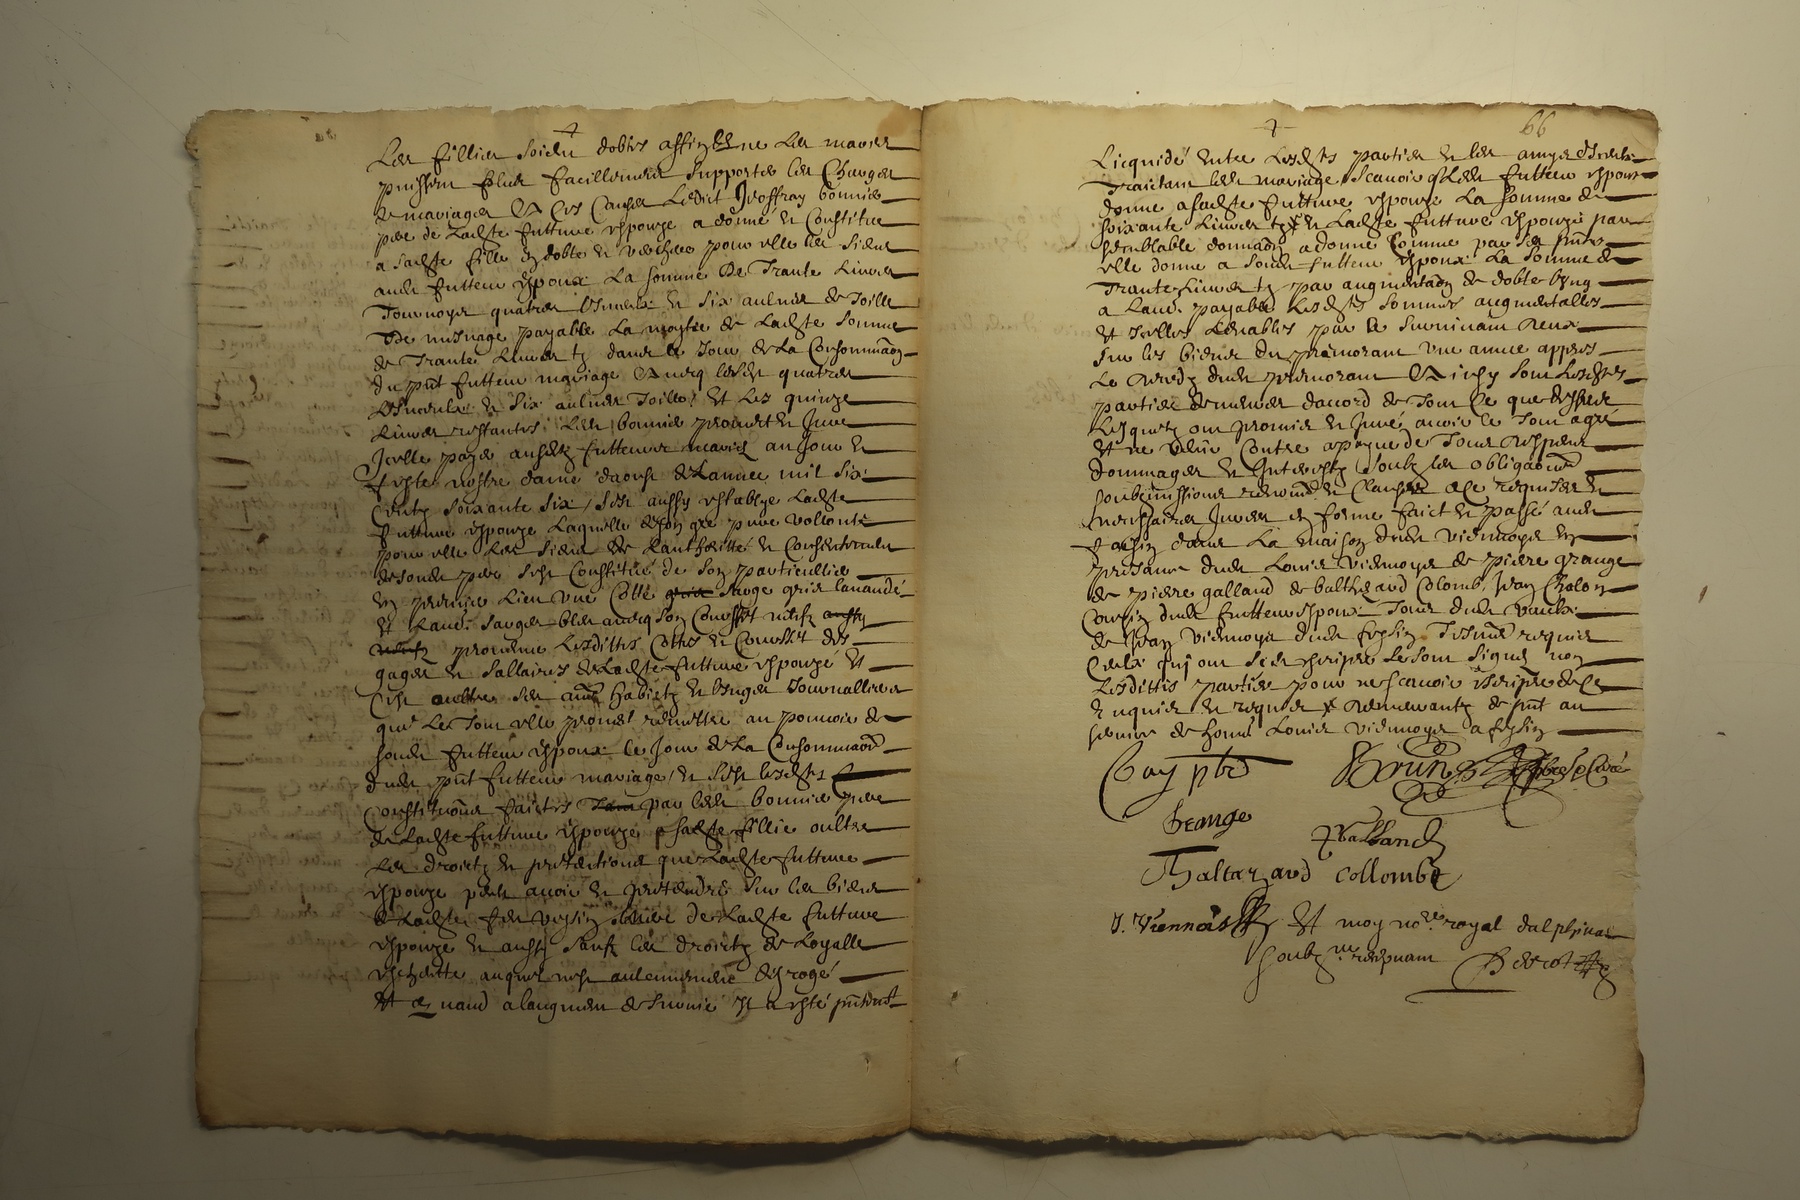 les filles soient dottés affin que les maris
puissent plus facillement supporter les charges
de mariages A ces causes ledict Jeoffray bonnier
pere de ladte future espouze a donné et constitue
a sadte fille en dobte et verchere pour elle les siens
audt futteur espoux la somme De Trante Livres
Tournoys quatres linceulx et six aulnes de Toille
De mesnage payable la moytie de ladte somme
de Trante Livres tz dans le Jour de La Consommaon
du pnt futteur mariage Avecq lesdt quatres
Linceulx et six aulnes Toille, Et Les quinze
Livres restantes ledt bonnier promet et Jure
Jcelle payer ausdtz futteurs mariés au Jour et
feste nostre dame daoust de Lannee mil six
Centz soixante six, sest aussy establye Ladte
futture espouze Laquelle de son gre pure vollonte
pour elle Les siens de Lauthoritté et Consentement
de sondt pere sest Constitué de son particullier
en premier Lieu une Cotte sarge gris lamandé
promeme Lesdittes Cottes et Corsset des
gages et sallaires de Ladte futture espouze Et
Cest oultre ses aues habietz et linges Journalliers
que Le Tout elle promet remettre au pouvoir de
sondt futteur espoux le Jour de La Consommaon
dudt pnt futteur mariage, et sest lesdtes
Constitutions faictes par ledt bonnier pere
de Ladte futture espouze a sadte fillie oultre
Les droictz et pretentions que Ladte future
espouze peult avoir et pretendre sur les biens
de Ladte mere de Ladte futture
espouze et aussy sauf les droictz de Loyalle
escheutte auquel nest aulcunement desrogé
Et quand a laugment de survie Il a esté pntement
66
Licquidé entre Lesdtes parties et les amys dicelles
Traictant ledt mariage scavoir q Ledt futteur espoux
donne a sadte futture espouze La somme de
soixante Livres tz et Ladte futture espouze par
semblable donnaon a donné Comme par ses pntes
elle donne a sondt futteur espoux la somme de
Trante Livres tz par augmentaon de dobte lung
a Laue payable Lesdtes sommes augmentalles
Et Jcelles Levables par le survivant deux
sur les biens du premorant une annee appres
Le deceds dudt premorant Ainsy sont Lesdtes
parties demeures daccord de Tout Ce que dessus
Lesquelz ont promis et Juré avoir le Tout agré
Et ne venir Contre a peyne de Tous despens
dommages et Interestz soubz les obligaons
soubzmissions renonon et Clauses a Ce requises et
necessaires Juree en forme faict et passé audt
feysin dans La maison dudt viennoys En
presance dudt Louis viennoys de pierre grange
de pierre galland de balthezard Colomb, Jean Cholon
Cousin dudt futteur espoux Tous dudt
de Jean viennoys dudt feysin Tesmoins requis
Ceulx quj ont sceu escripre se sont signes non
Lesdittes parties pour ne scavoir escripre de Ce
Enquises et requises demeurantz de pnt au
service de honn Louis viennoys a feysin
Guy pbr
Grange
Galland
Baltazard collombt
J. Viennois
Et moy nore royal dalphinal
soubzne recepvant